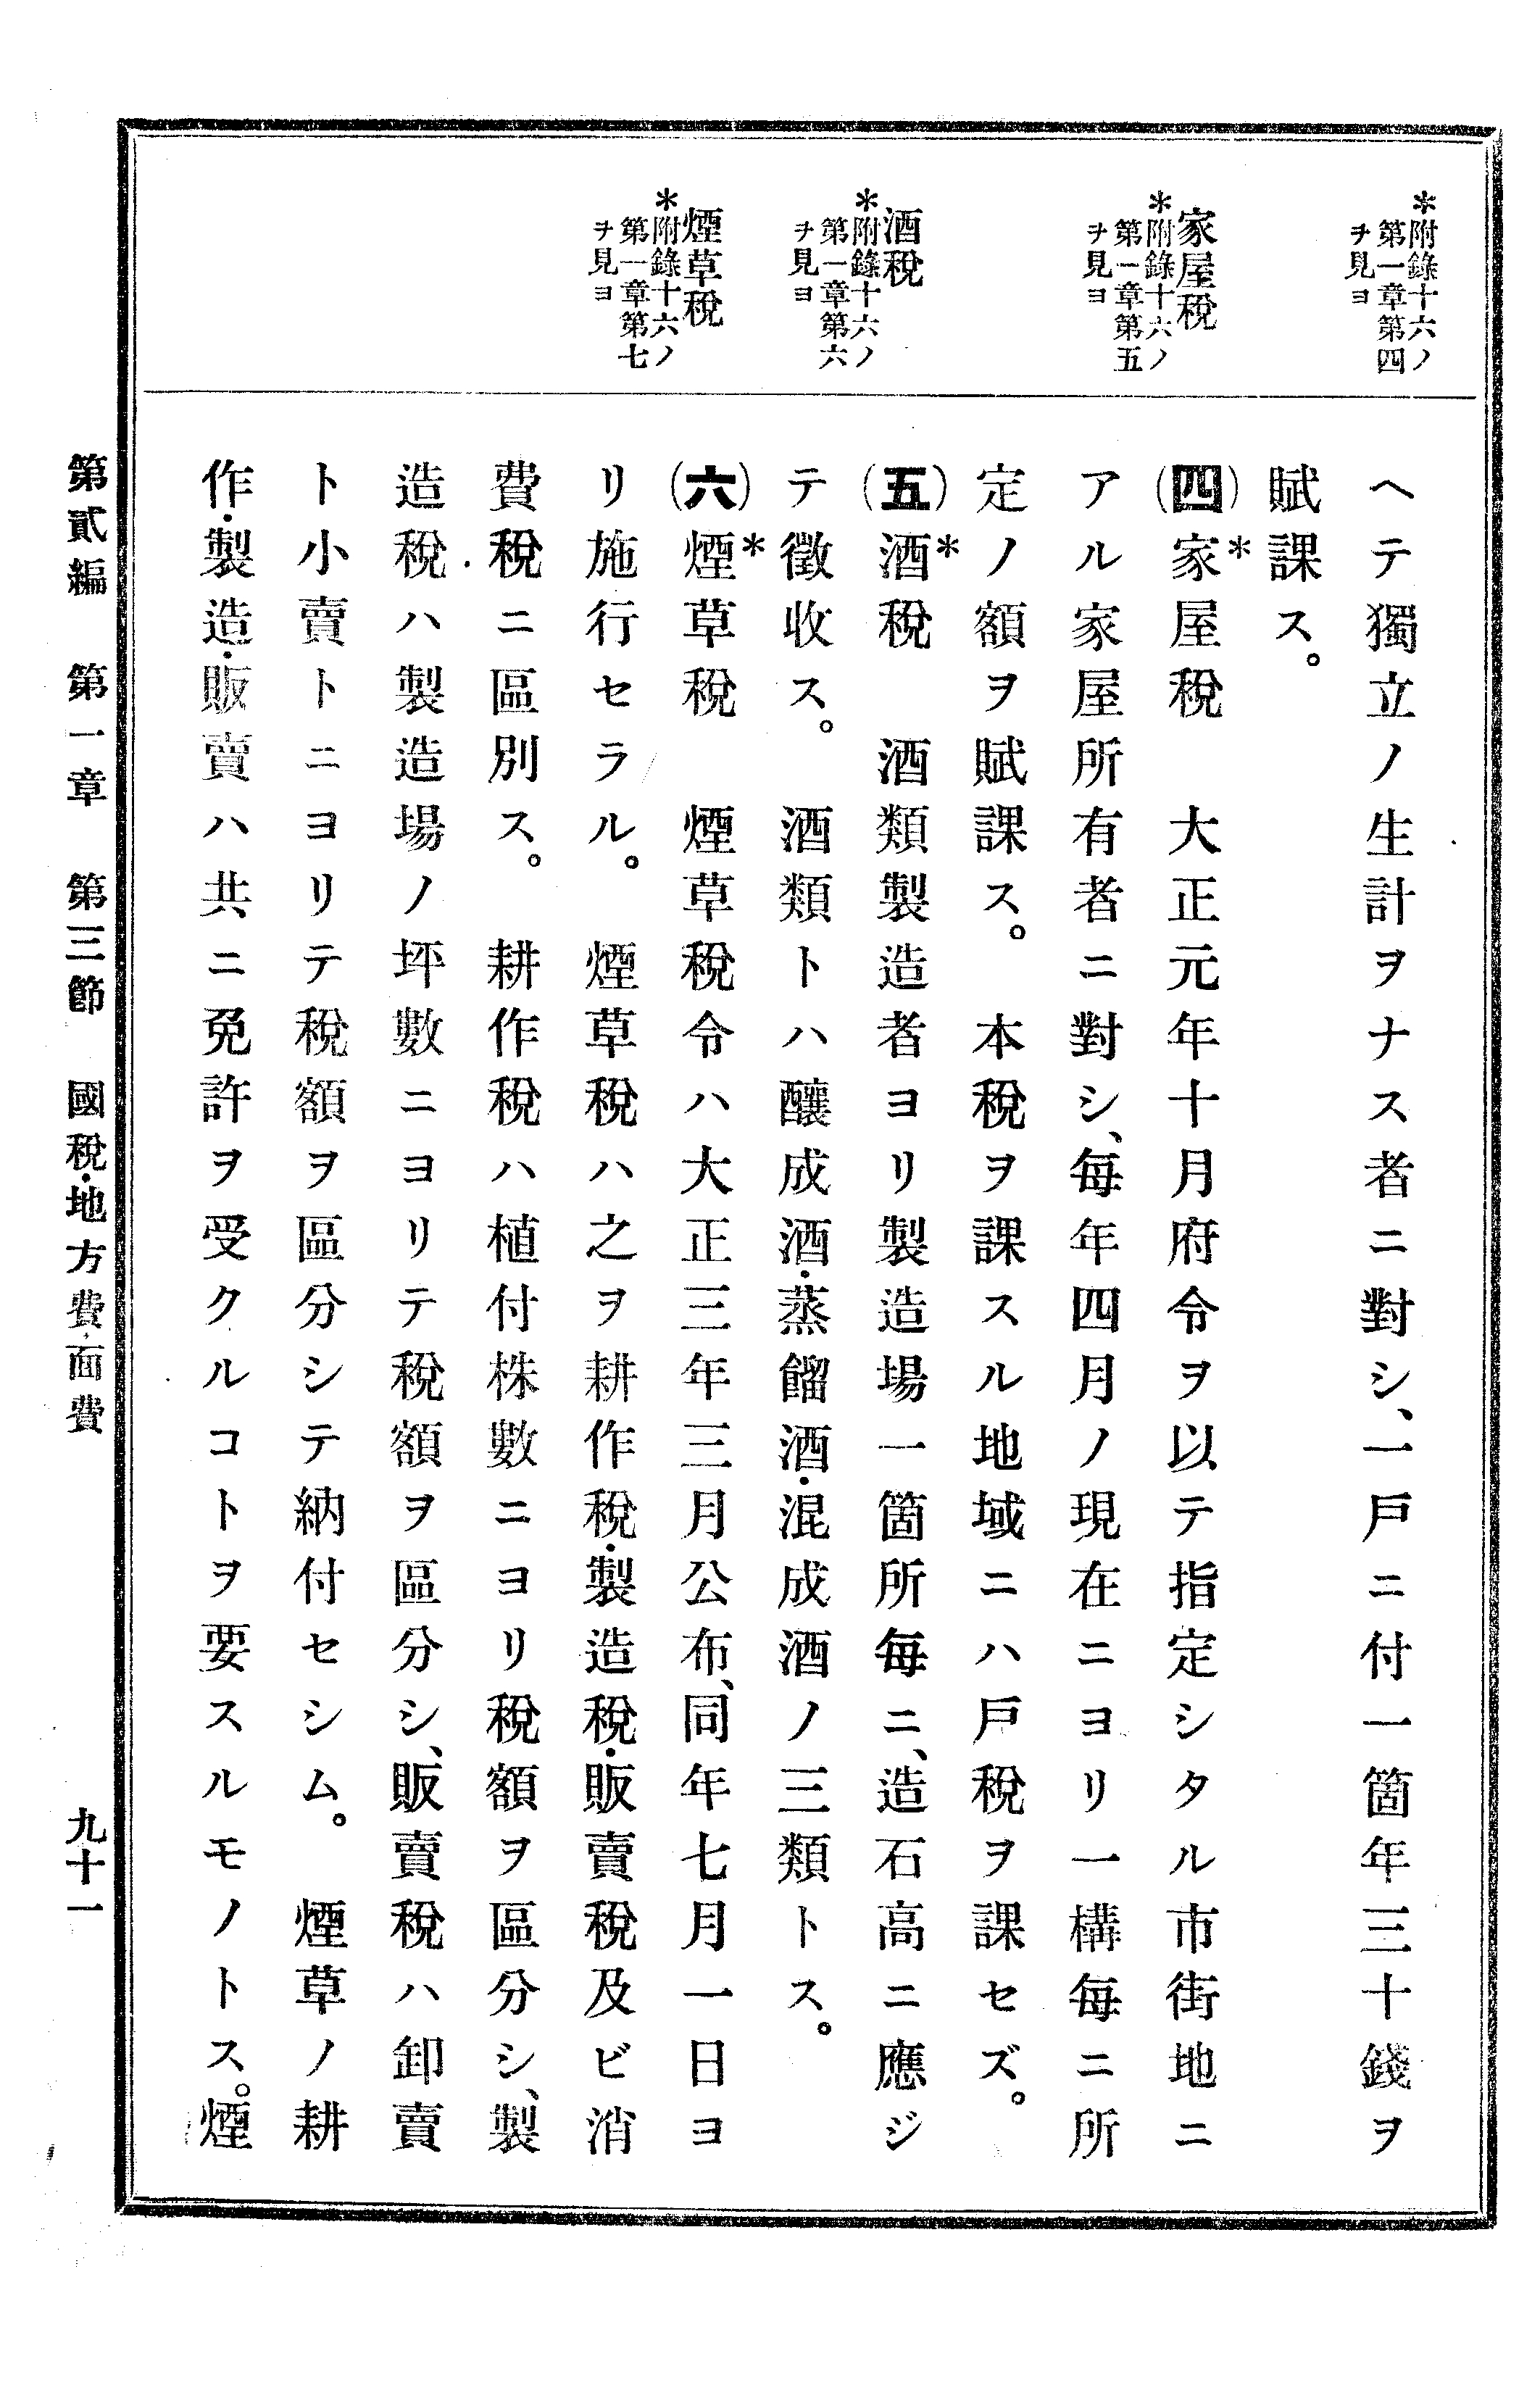 ＊附錄十六ノ
第一章第四
ヲ見ヨ
家屋稅
＊附錄十六ノ
第一章第五
ヲ見ヨ
酒稅
＊附錄十六ノ
第一章第六
ヲ見ヨ
煙草稅
＊附錄十六ノ
第一章第七
ヲ見ヨ
ヘテ獨立ノ生計ヲナス者ニ對シ、一戶ニ付一箇年三十錢ヲ
賦課ス。
(四)家＊屋稅　大正元年十月府令ヲ以テ指定シタル市街地ニ
アル家屋所有者ニ對シ、每年四月ノ現在ニヨリ一構每ニ所
定ノ額ヲ賦課ス。　本稅ヲ課スル地域ニハ戶稅ヲ課セズ。
(五)酒＊稅　酒類製造者ヨリ製造場一箇所每ニ、造石高ニ應ジ
テ徵收ス。　酒類トハ釀成酒・蒸餾酒・混成酒ノ三類トス。
(六)煙＊草稅　煙草稅令ハ大正三年三月公布、同年七月一日ヨ
リ施行セラル。　煙草稅ハ之ヲ耕作稅・製造稅・販賣稅及ビ消
費稅ニ區別ス。　耕作稅ハ植付株數ニヨリ稅額ヲ區分シ、製
造稅ハ製造場ノ坪數ニヨリテ稅額ヲ區分シ、販賣稅ハ卸賣
ト小賣トニヨリテ稅額ヲ區分シテ納付セシム。　煙草ノ耕
作・製造・販賣ハ共ニ免許ヲ受クルコトヲ要スルモノトス。煙
第貳編　第一章　第三節　國稅・地方費・面費　九十一